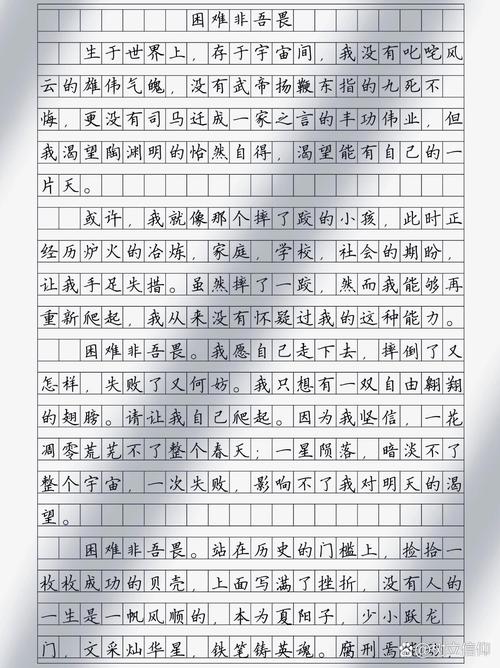 困难非吾畏
生于世界上，存于宇宙间，我没有叱咤风
云的雄伟气魄，没有武帝扬鞭东指的九死不
悔，更没有司马迁成一家之言的丰功伟业，但
我渴望陶渊明的怡然自得，渴望能有自己的一
片天。
或许，我就像那个摔了跤的小孩，此时正
经历炉火的冶炼，家庭，学校，社会的期盼，
让我手足失措。虽然摔了一跤，然而我能够再
重新爬起，我从来没有怀疑过我的这种能力。
困难非吾畏。我愿自己走下去，摔倒了又
怎样，失败了又何妨。我只想有一双自由翱翔
的翅膀。请让我自己爬起。因为我坚信，一花
凋零荒芜不了整个春天；一星陨落，暗淡不了
整个宇宙，一次失败，影响不了我对明天的渴
望。
困难非吾畏。站在历史的门槛上，捡拾一
枚枚成功的贝壳，上面写满了挫折，没有人的
一生是一帆风顺的，本为夏阳子，少小跃龙
门，文采灿华星，铁笔铸英魂。腐刑焉